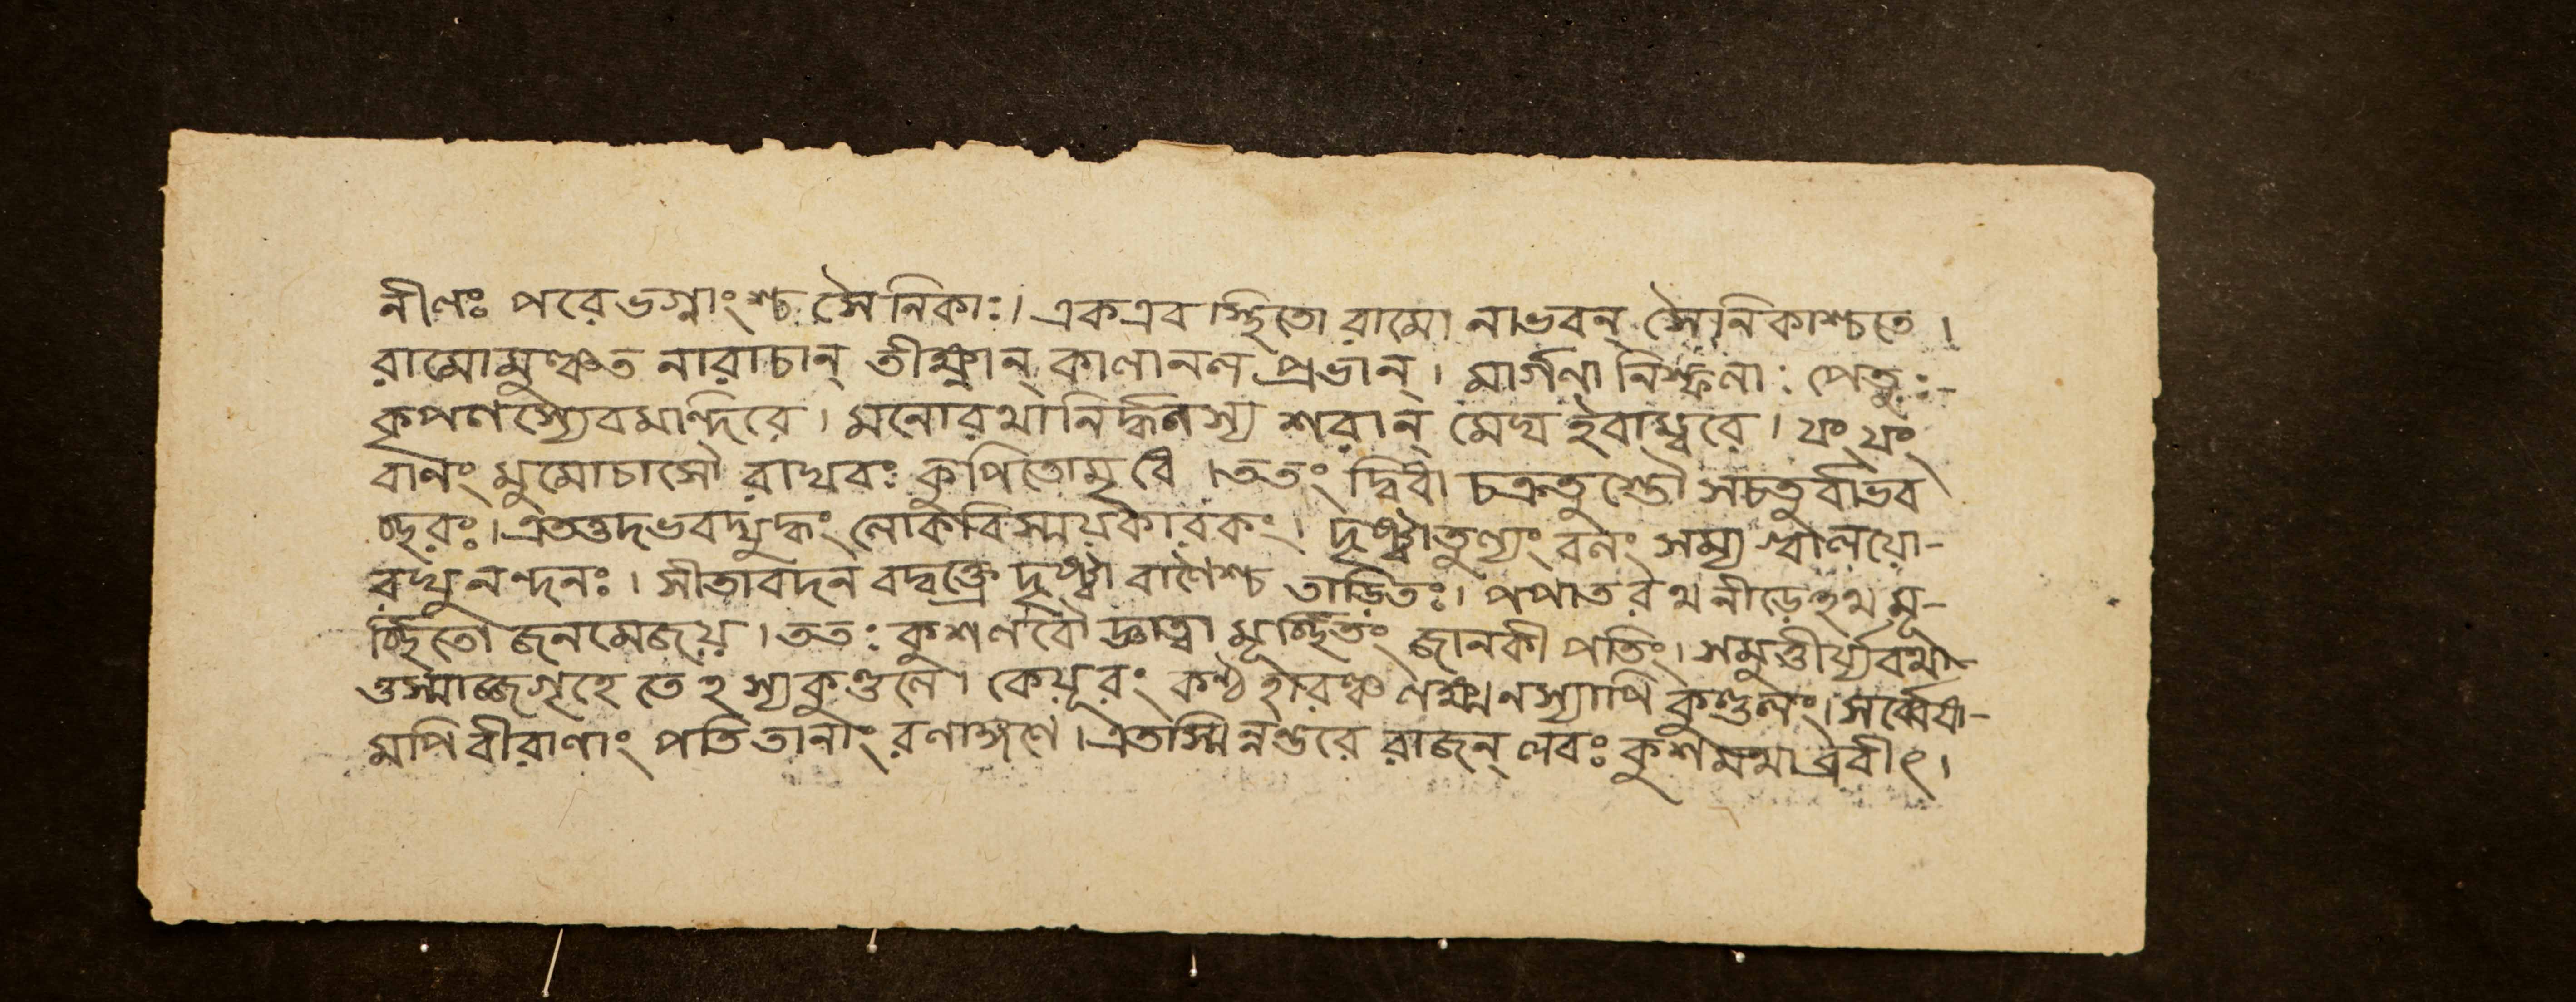 নীলঃ পরে ভগ্নাংশ্চ সৈনিকাঃ। একএব স্থিতো রামো নাভবন্ সৈনিকাশ্চতে।
রামোমুঞ্চত নারাচান্ তীক্ষ্ণান্ কালানল প্রভান্। মার্গনা নিস্ফনা: পেতু:-
কৃপণস্যেবমান্দিরে। মনোরথানির্দ্ধনস্য শরান্ মেঘ ইবাম্বরে। যং যং
বানং মুমোচাসৌ রাঘবঃ কুপিতোমৃধে। ততং দ্বিধা চক্রতুস্তৌ সচতুর্বাভব
চ্ছরঃ। এতত্তদভবদ্যুদ্ধং লোকবিস্ময়কারকং। দৃষ্ট্বাতুল্যং বনং সম্য গ্বালয়ো-
রঘুনন্দনঃ। সীতাবদন বদ্বক্ত্রে দৃষ্ট্বা বাণৈশ্চ তাড়িতঃ। পপাত রথনীড়েহথ মূ-
র্চ্ছিতো জনমেজয়। ততঃ কুশলবৌ জ্ঞাত্বা মূর্চ্ছিতং জানকী পতিং। সমুত্তীর্য্যরথা-
ত্তস্মাজ্জগৃহে তেহস্যকুণ্ডলে। কেয়ূরং কণ্ঠহারঞ্চ লক্ষ্মনস্যাপি কুণ্ডলং। সর্ব্বেষা-
মপি বীরাণাং পতিতানাং রণাঙ্গণে। এতস্মিন্নন্তরে রাজন্ লবঃ কুশমথাব্রবীৎ।